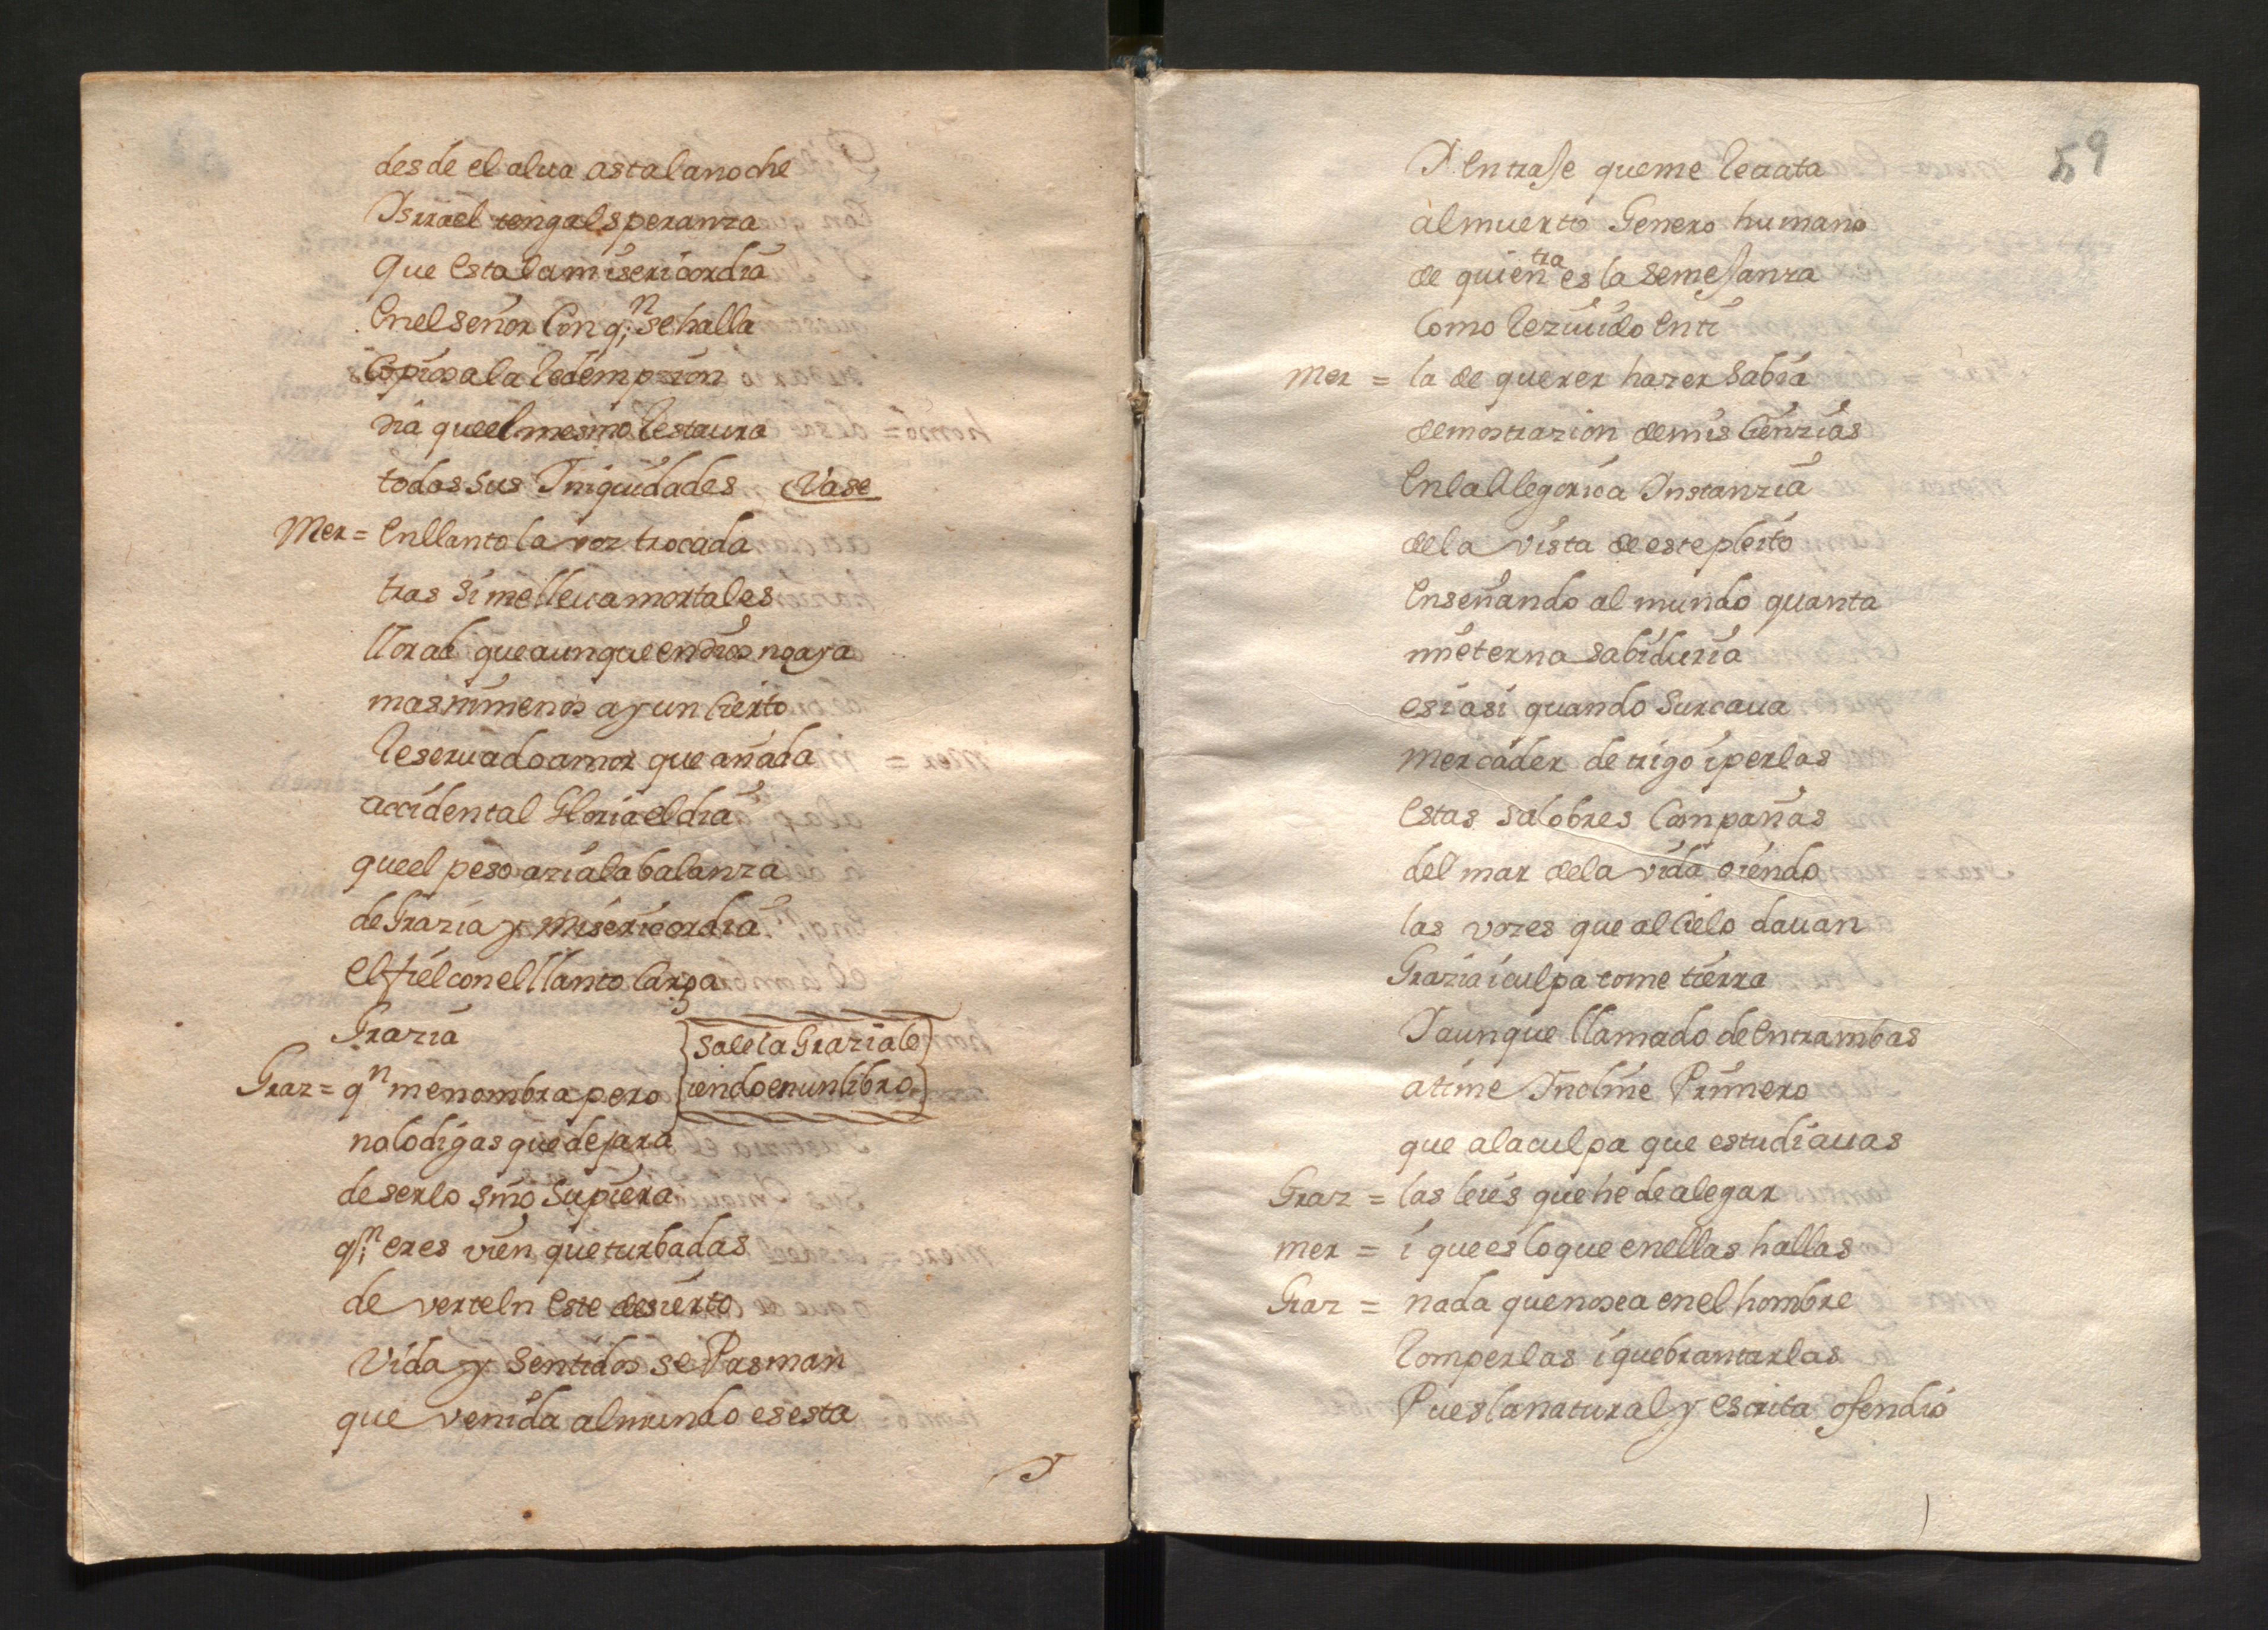 desde el alua asta la noche
Isrrael tenga esperanza
Que esta la misericordia
en el señor con q.n se halla
copiosa la redempzion
dia que el mesmo restaura
todas sus Iniquidades Vase
Mer = en llanto la voz trocada
tras si me lleua mortales
llorad que aunque en dios no aya
mas ni menos ay un cierto
reseruado amor que añada
accidental Gloria el dia
que el peso azia la balanza
de Grazia y Misericordia
el fiel con el llanto carga
Grazia
Sale la Grazia le
iendo en un libro
Graz = q.n me nombra pero
no lo digas que dejara
de serlo sino supiera
q.n eres vien que turbadas
de verte en este desierto
Vida y sentidos se Pasman
que venida al mundo es esta
Y
59
Y en traje que me retrata
al muerto Genero humano
de quien tra es la semejanza
como rezuuido en ti
Mer = la de querer hazer sabia
demostrazion de mis cienzias
en la Alegorica Instanzia
de la vista de este pleito
enseñando al mundo quanta
mi eterna sabiduria
es i asi quando surcaua
mercader de trigo i perlas
estas salobres campañas
del mar de la vida oiendo
las vozes que al cielo dauan
Grazia i culpa tome tierra
I aunque llamado de entrambas
a ti me Incline Primero
que a la culpa que estudiauas
Graz = las leies que he de alegar
mer = i que es lo que en ellas hallas
Graz = nada que no sea en el hombre
romperlas i quebrantarlas
Pues la natural y escrita ofendio